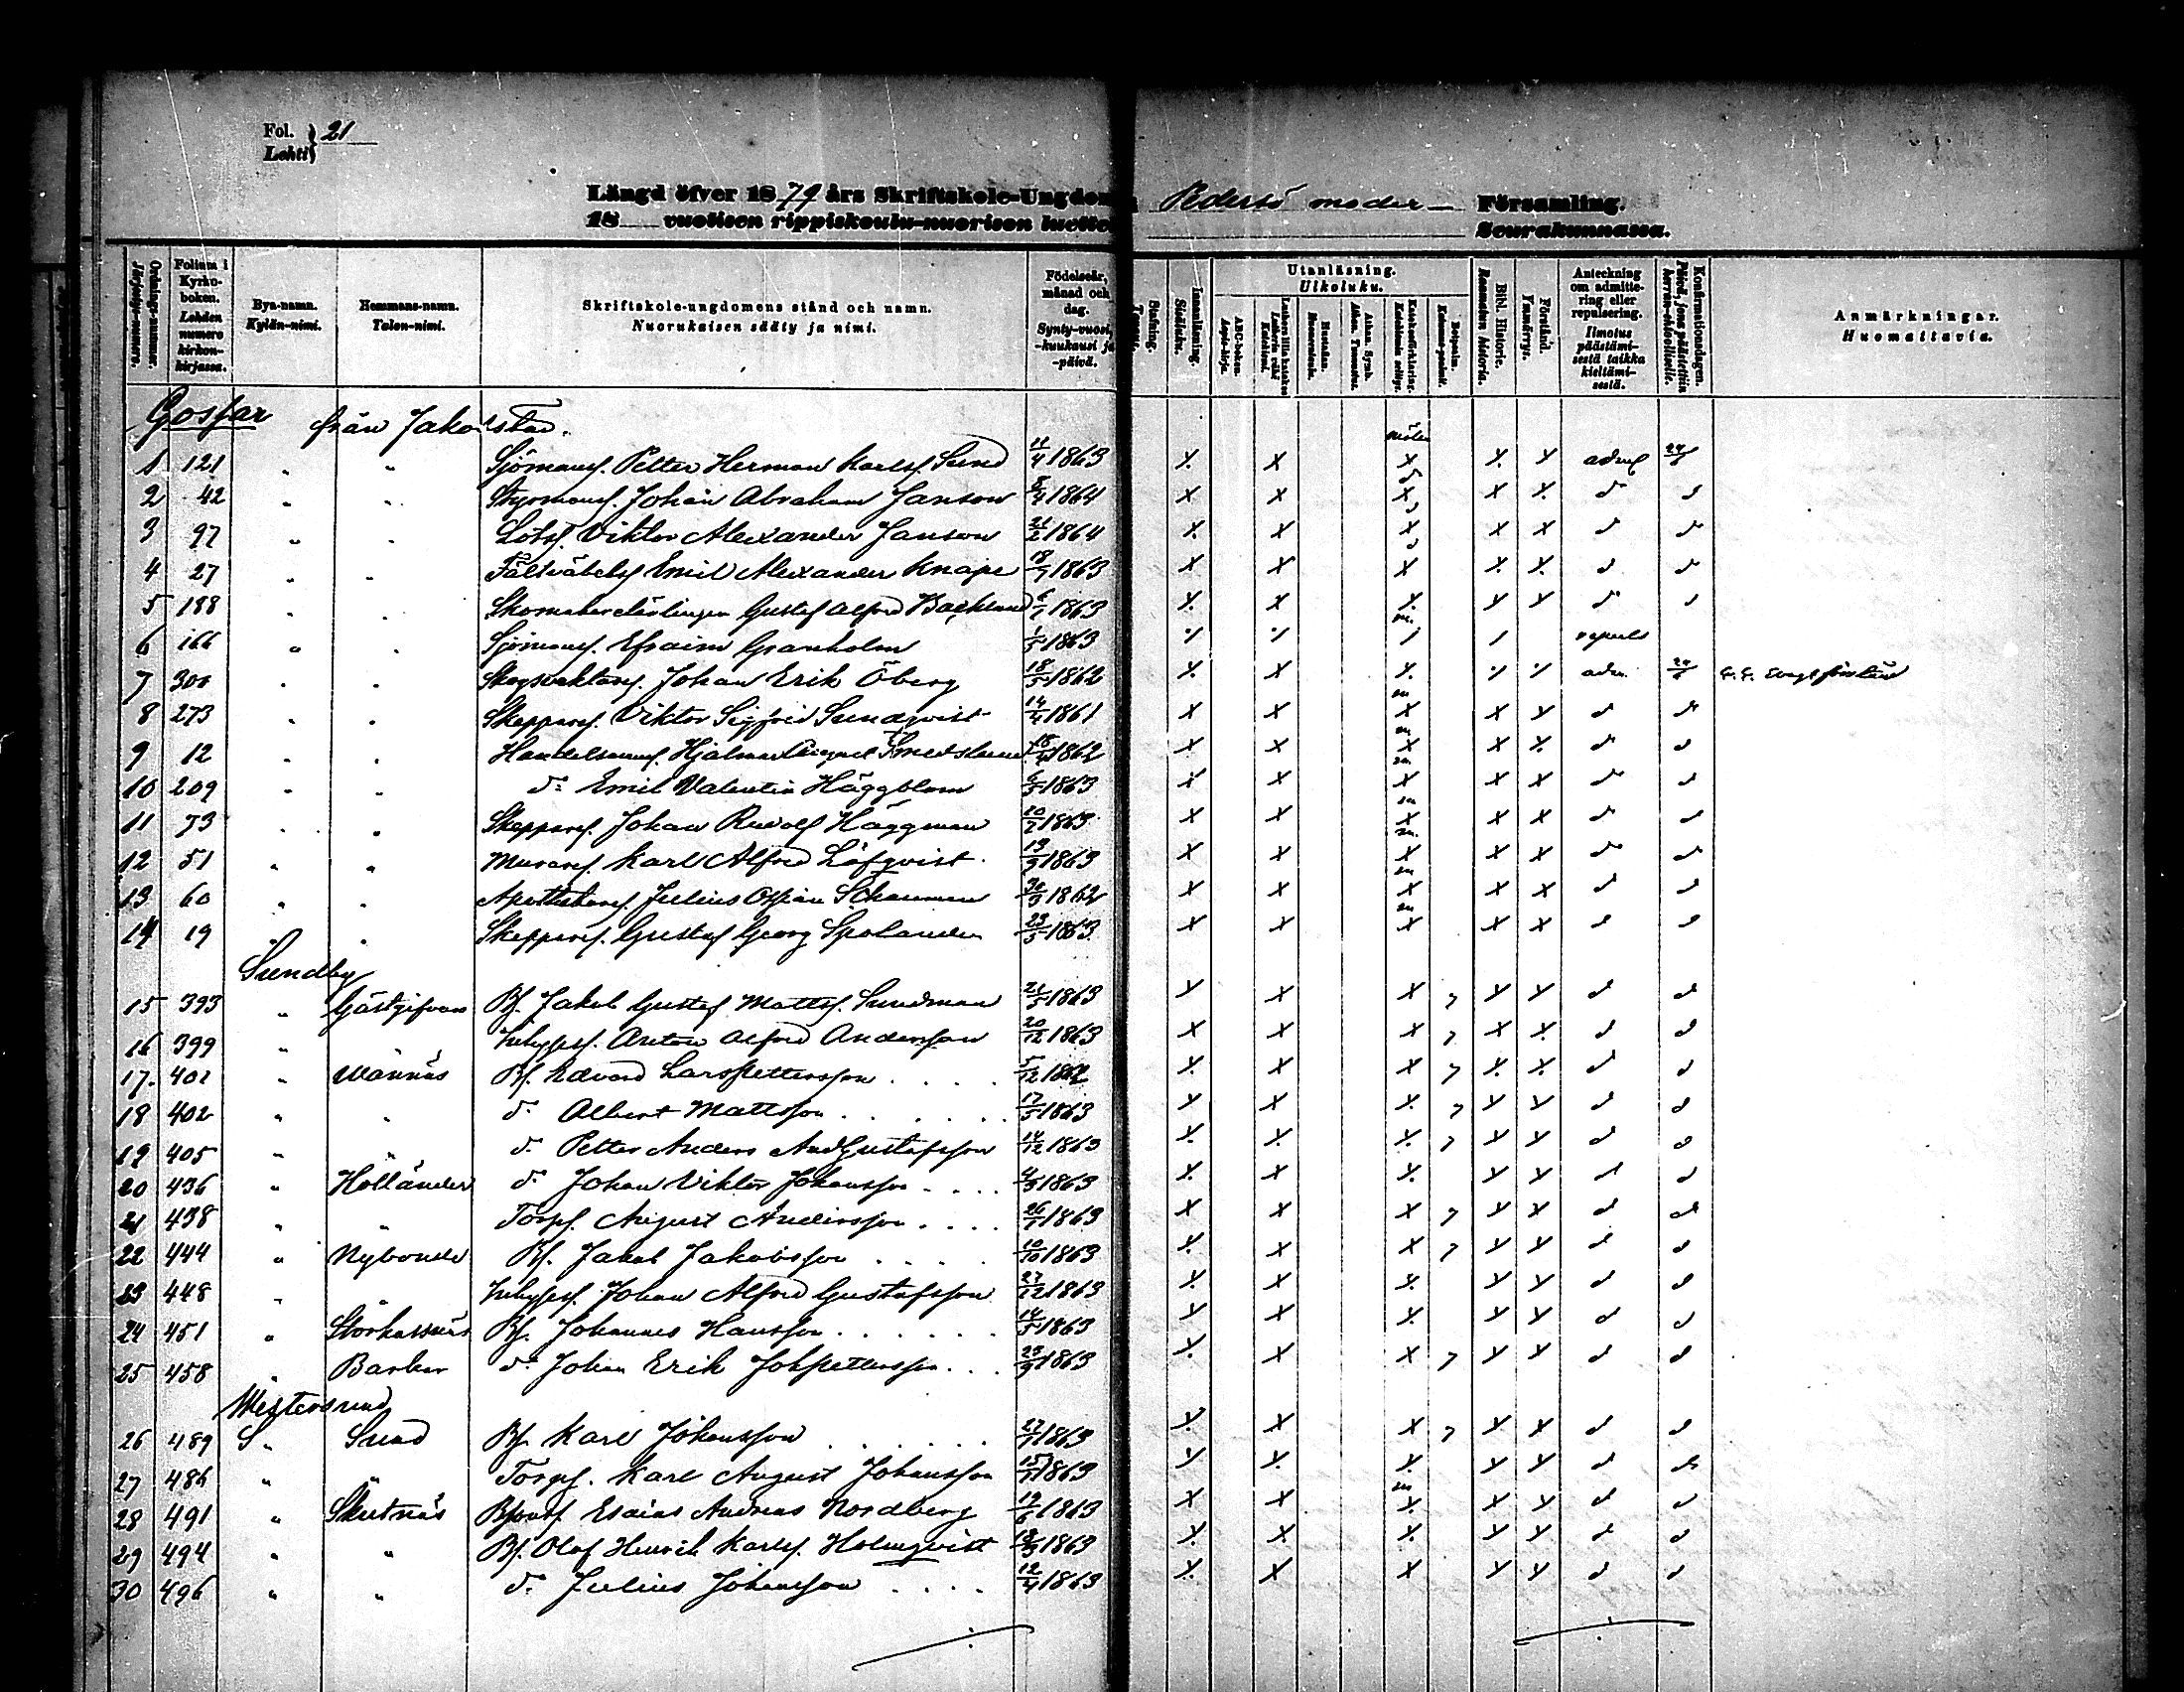 Fol. 21
Lehti
Längd öfver 1879 års Skriftskole-Ungdom Pedersö moder Församling.
18 vuotisen rippikoulu-nuorison luette Seurakunnassa.
Ordnings-nummer. Järjestys-numero.
Folium i Kyrko-boken. Lehden numero kirkon-kirjassa.
Bya-namn. Kylän-nimi.
Hemmans-namn. Talon-nimi.
Skriftskole-ungdomens stånd och namn. Nuorukaisen sääty ja nimi.
Födelseår, månad och dag. Synty-vuosi, -kuukausi ja -päivä.
Stafning. Tavuu.
Innanläsning. Sisäluku.
Utanläsning. Ulkoluku.
ABC-boken.
Luthers lilla katekes
Hustaflan. Huoneentaulu.
Athan. Symb. Athan. Tunnustus.
Botpsalm.
Bibl. Historie. Raamatun historia.
Förstånd. Ymmärrys.
Anteckning om admitte-ring eller repulsering. Ilmoitus päästämi-sestä taikka kieltämi-sestä.
Konfirmationsdagen.
Anmärkningar. Huomattavia.
Gossar från Jakobstad.
1 121 " " Sjömans. Petter Herman Karlss. Sund 11/4 1863 x x x x x adm 29/6
2 42 " " Styrmans. Johan Abraham Janson 8/4 1864 x x x x x d d
3 97 " " Lotss. Viktor Alexander Janson 21/2 1864 x x x x x d d
4 27 " " Fältväbels Emil Alexander Knape 18/7 1863 x x x x x d d
5 188 " " Skomakarelärlingen Gustaf Alfred Backlund 1863 x x x x x d d
6 166 " " Sjömans. Efraim Granholm 1/5 1863 repuls
7 300 " " Skogsvaktares. Johan Erik Öberg 18/5 1862 x x x adm.
8 273 " " Skeppares. Viktor Sigfrid Sundqvist 14/4 1861 x x x x x d d
9 12 " " Handelsmans. Hjalmar August Smedslund 18/4 1862 x x x x x d d
10 209 " " d:o Emil Valentin Häggblom 6/5 1863 x x x x x d d
11 73 " " Skeppares. Johan Rudolf Häggman 20/7 1863 x x x x x d d
12 51 " " Murares. Karl Alfred Löfqvist 13/9 1863 x x x x x d d
13 60 " " Apothekares. Julius Ossian Schauman 30/9 1862 x x x x x d d
14 19 " " Skeppares. Gustaf Georg Spolander 23/5 1863 x x x x x d d
Sundby
15 393 " Gästgifvars Bs. Jakob Gustaf Mattss. Sundman 21/5 1863 x x x x x d d
16 399 " Inhyses. Anton Alfred Andersson 20/12 1863 x x x x x d d
17. 401 " Männäs Bs. Edvard Larspettersson 5/12 1862 x x x x x d d
18 402 " " d:o Albert Mattsson 17/5 1863 x x x x x d d
19 405 " d:o Petter Anders AndGustafsson 14/12 1863 x x x x x d d
20 436 " Holländer d:o Johan Viktor Johansson 4/3 1863 x x x x x d d
21 438 " " Torps. August Andersson 26/1 1863 x x x x x d d
22 444 " Nybonde Bs. Jakob Jakobsson 10/10 1863 x x x x x d d
23 448 " " Inhyses. Johan Alfred Gustafsson 27/12 1863 x x x x x d d
24 451 " Storkassnäs Bs. Johannes Hansson 14/5 1863 x x x x x d d
25 458 " Barkar d:o Johan Erik Johpettersson 23/9 1863 x x x x x d d
Westersund
26 489 S. " Sund Bs. Karl Johansson 27/1 1863 x x x x x d d
27 486 " Torps. Karl August Johansson 15/7 1863 x x x x x d d
28 491 " Skutnäs Esaias Andreas Nordberg 19/6 1863 x x x x x d d
29 494 " " Bs. Olof Henrik Karlss. Holmqvist 1863 x x x x x d d
30 496 " " d:o Julius Johansson 12/4 1863 x x x x x d d